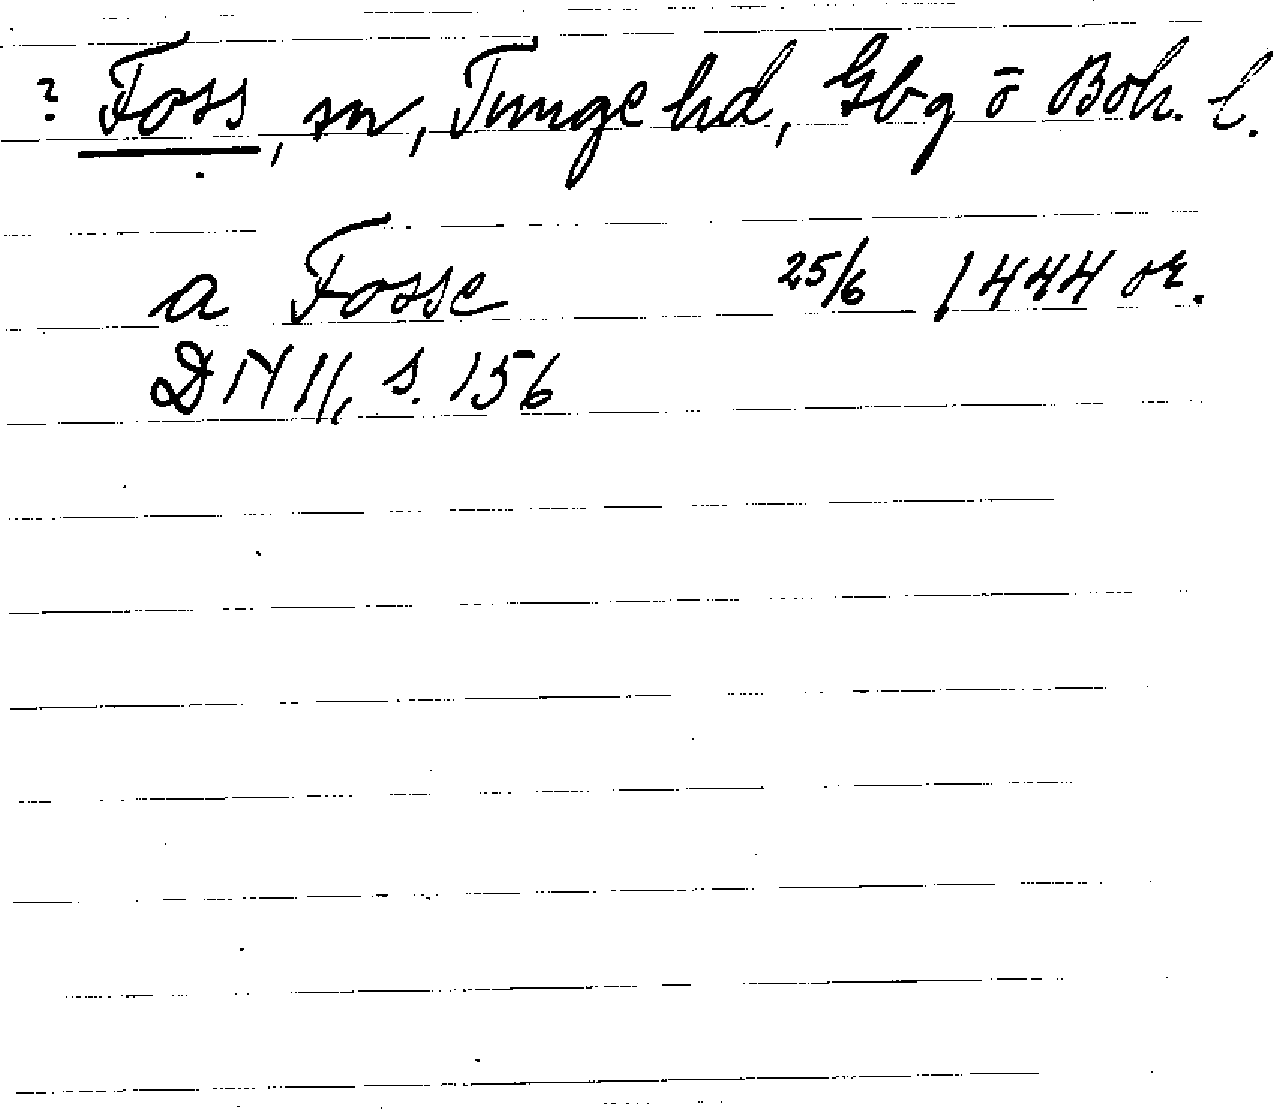 ? Foss, sn, Tunge hd, Gbg ō Boh. l.
a Fosse 25/6 1444 or.
DN II, s. 156